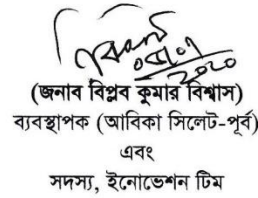 (জনাব বিপ্লব কুমার বিশ্বাস)
ব্যবস্থাপক (আবিকা সিলেট-পূর্ব)
এবং
সদস্য, ইনোভেশন টিম